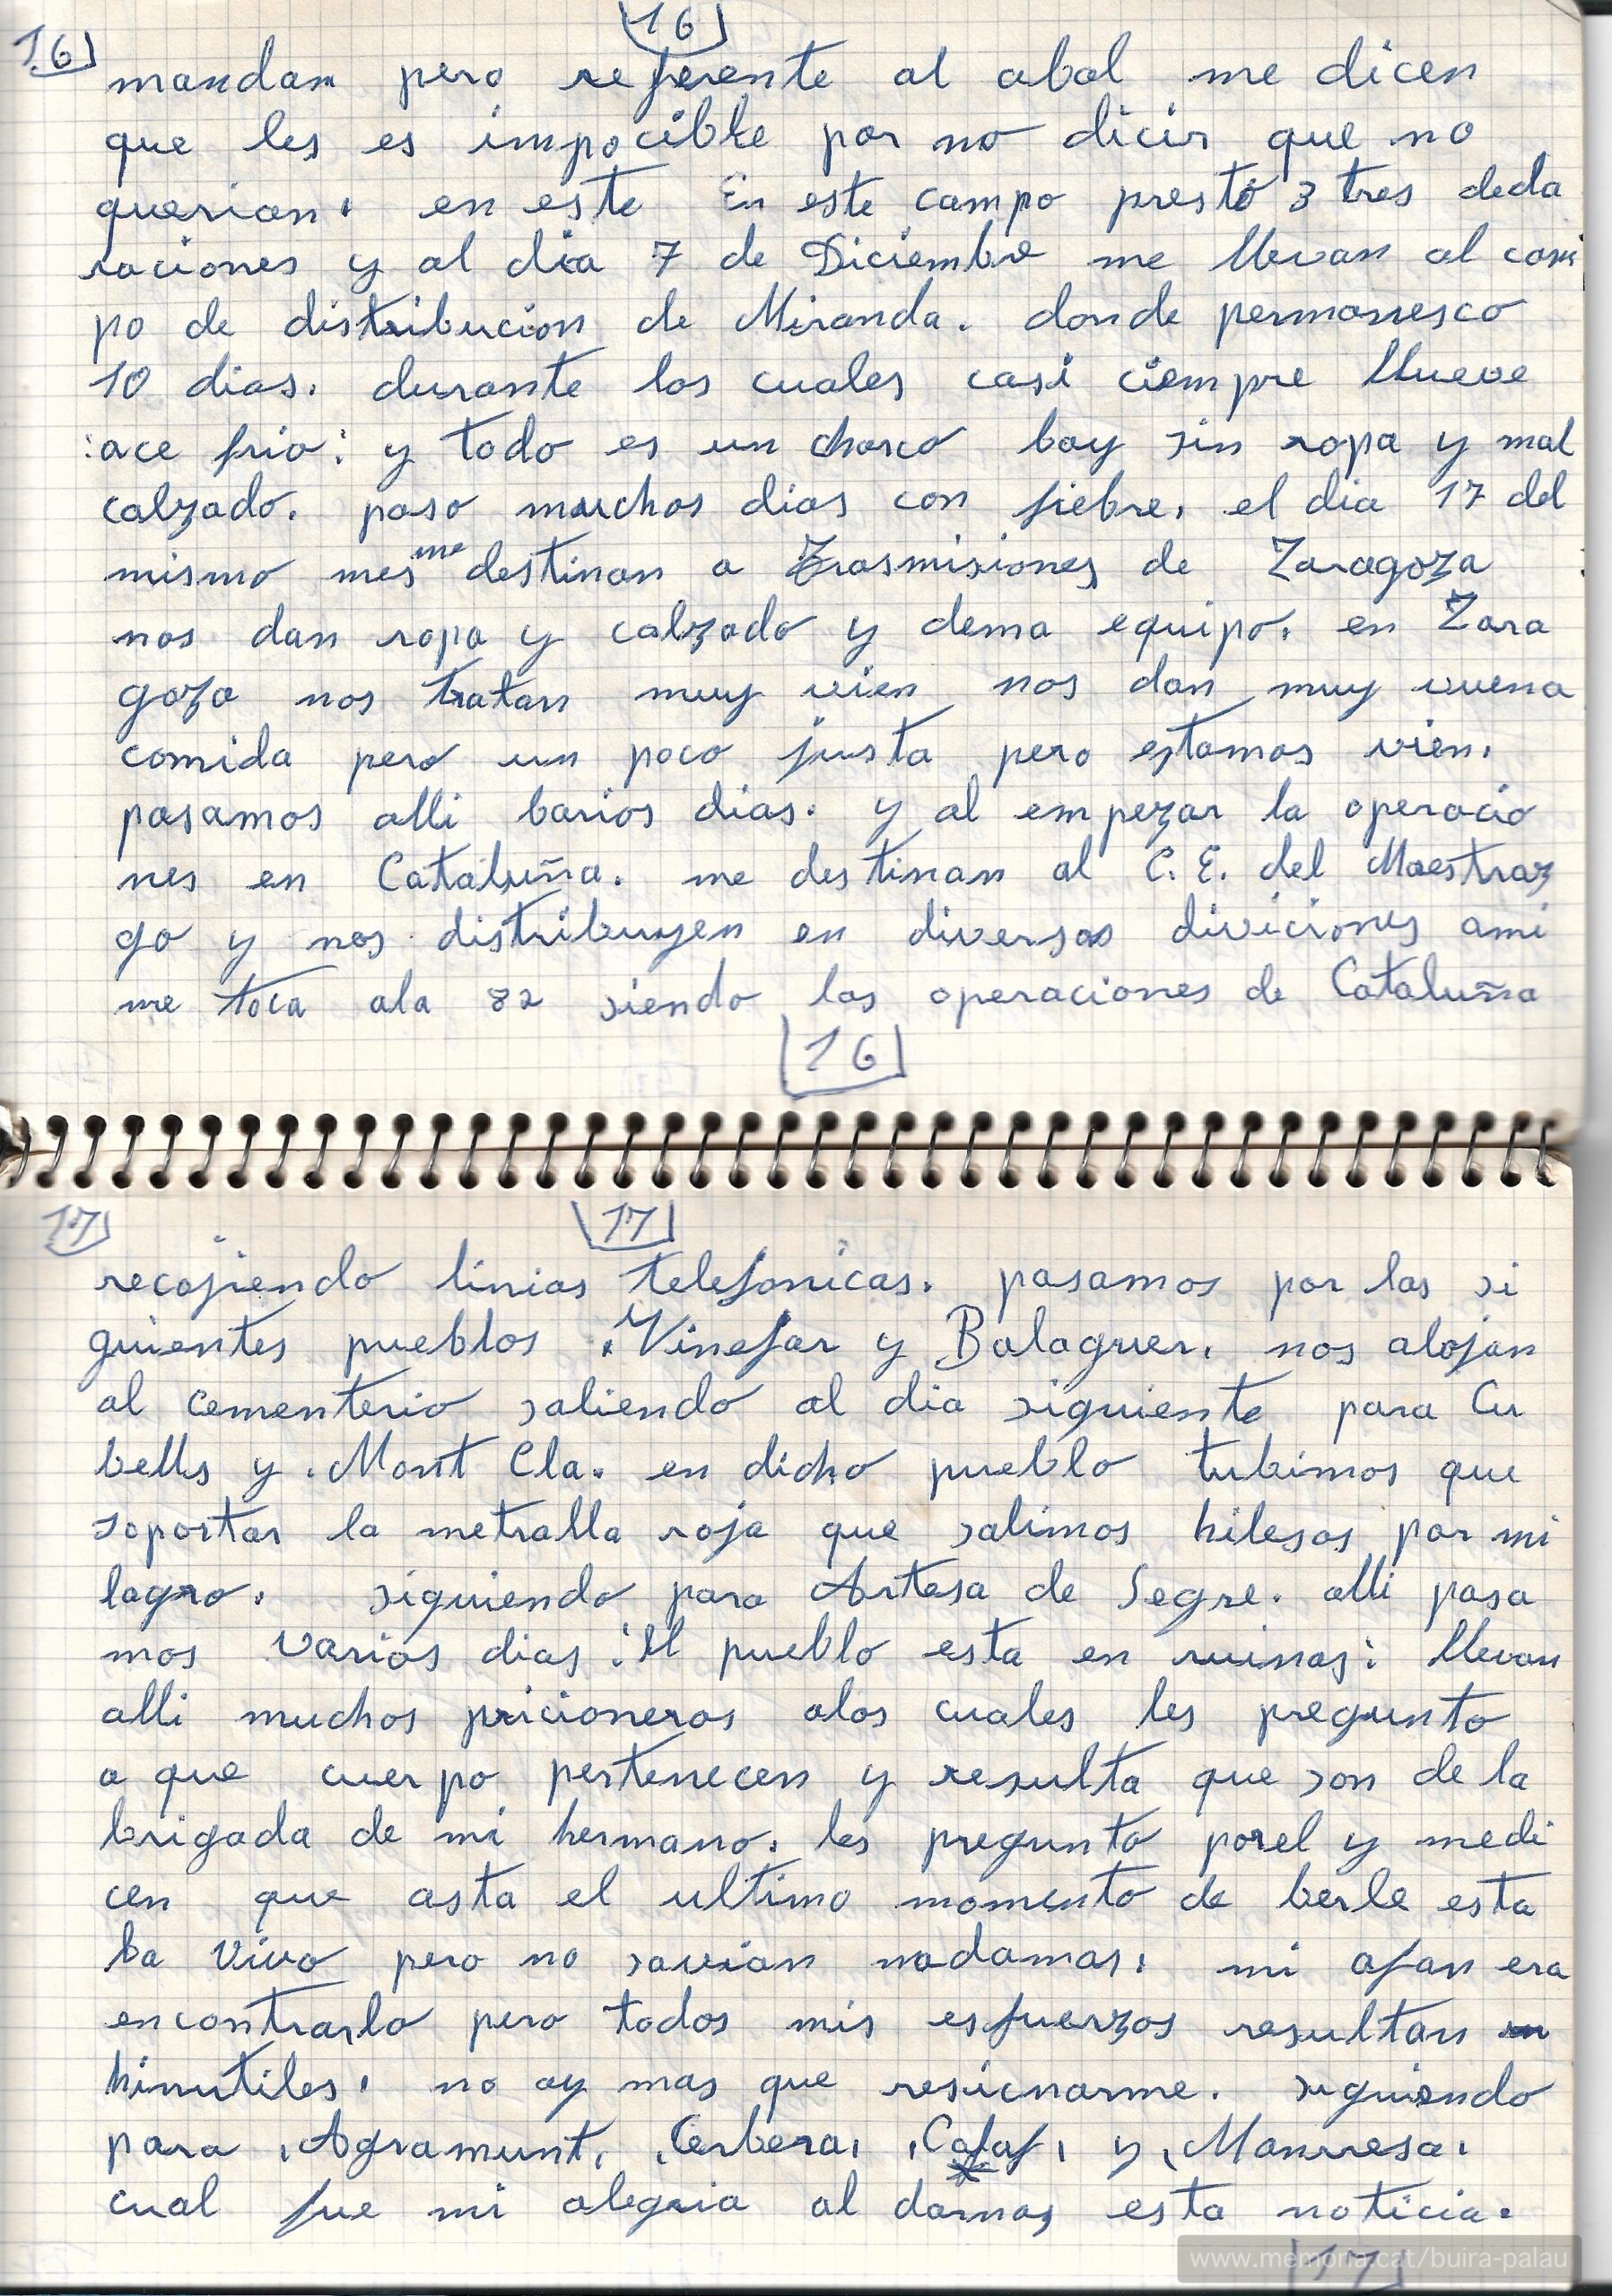 16
16
mandan pero referente al abal me dicen
que les es impocible por no dicir que no
querian. en este En este campo presto 3 tres decla
raciones y al dia 7 de Diciembre me llevan al cam
po de distribucion de Miranda. donde permanesco
10 dias. durante los cuales casi ciempre llueve
:ace frio: y todo es un charco boy sin ropa y mal
calzado. paso muchos dias con fiebre. el dia 17 del
mismo mes me destinan a Trasmisiones de Zaragoza
nos dan ropa y calzado y dema equipo. en Zara
goza nos tratan muy vien nos dan muy vuena
comida pero un poco justa pero estamos vien.
pasamos alli barios dias. y al empezar la operacio
nes en Cataluña. me destinan al C. E. del Maestraz
go y nos distribuyen en diversas diviciones ami
me toca ala 82 siendo las operaciones de Cataluña
16
17
17
recojiendo linias telefonicas. pasamos por las si
guientes pueblos . Vinefar y Balaguer. nos alojan
al cementerio saliendo al dia siguiente para Cu
bells y . Mont Cla. en dicho pueblo tubimos que
soportar la metralla roja que salimos hilesos por mi
lagro. siguiendo para Artesa de Segre. alli pasa
mos varios dias :El pueblo esta en ruinas: llevan
alli muchos pricioneros alos cuales les pregunto
a que cuerpo pertenecen y resulta que son de la
brigada de mi hermano. les pregunto porel y medi
cen que asta el ultimo momento de berle esta
ba vivo pero no savian nadamas. mi afan era
encontrarlo pero todos mis esfuerzos resultan
hinutiles. no ay mas que resicnarme. siguiendo
para , Agramunt, , Cerbera, , Calaf, y , Manresa.
cual fue mi alegria al darnos esta noticia.
17
www.memoria.cat/buira-palau